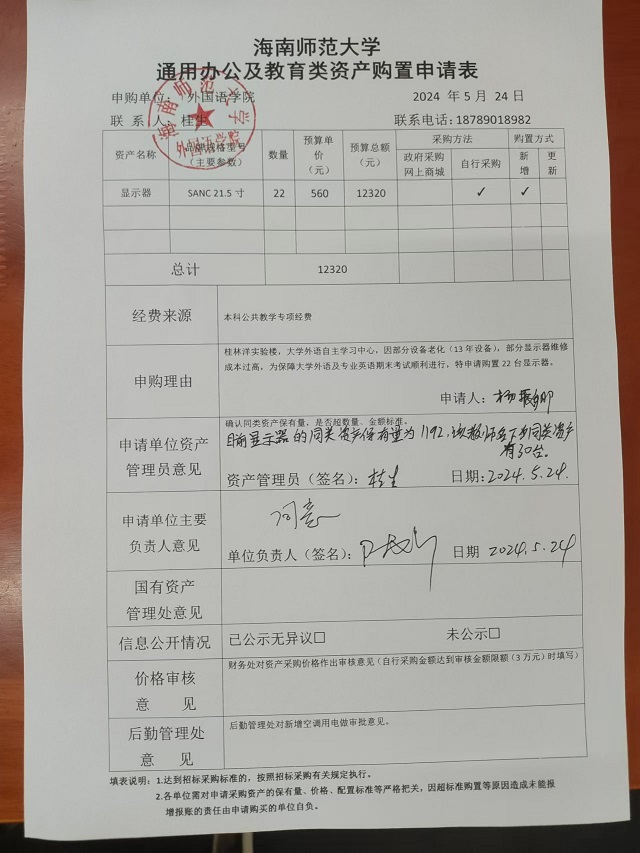 海南师范大学
通用办公及教育类资产购置申请表
申购单位：外国语学院 2024 年 5 月 24 日
联 系 人：桂生 联系电话：18789018982
海南师范大学
外国语学院
资产名称 品牌规格型号（主要参数） 数量 预算单价（元） 预算总额（元） 采购方法 购置方式
政府采购网上商城 自行采购 新增 更新
显示器 SANC 21.5 寸 22 560 12320 ✓ ✓
总计 12320
经费来源 本科公共教学专项经费
申购理由
桂林洋实验楼，大学外语自主学习中心，因部分设备老化（13 年设备），部分显示器维修
成本过高，为保障大学外语及专业英语期末考试顺利进行，特申请购置 22 台显示器。
申请人：杨
申请单位资产
管理员意见
确认同类资产保有量，是否超数量、金额标准。
目前显示器的同类资产保有量为1192，该教师名下的同类资产
有30台。
资产管理员（签名）：桂生 日期：2024.5.24.
申请单位主要
负责人意见
同意
单位负责人（签名）： 日期 2024.5.24
国有资产
管理处意见
信息公开情况 已公示无异议□ 未公示□
价格审核
意 见
财务处对资产采购价格作出审核意见（自行采购金额达到审核金额限额（3 万元）时填写）
后勤管理处
意 见
后勤管理处对新增空调用电做审批意见。
填表说明：1.达到招标采购标准的，按照招标采购有关规定执行。
2.各单位需对申请采购资产的保有量、价格、配置标准等严格把关，因超标准购置等原因造成未能报
增报账的责任由申请购买的单位自负。